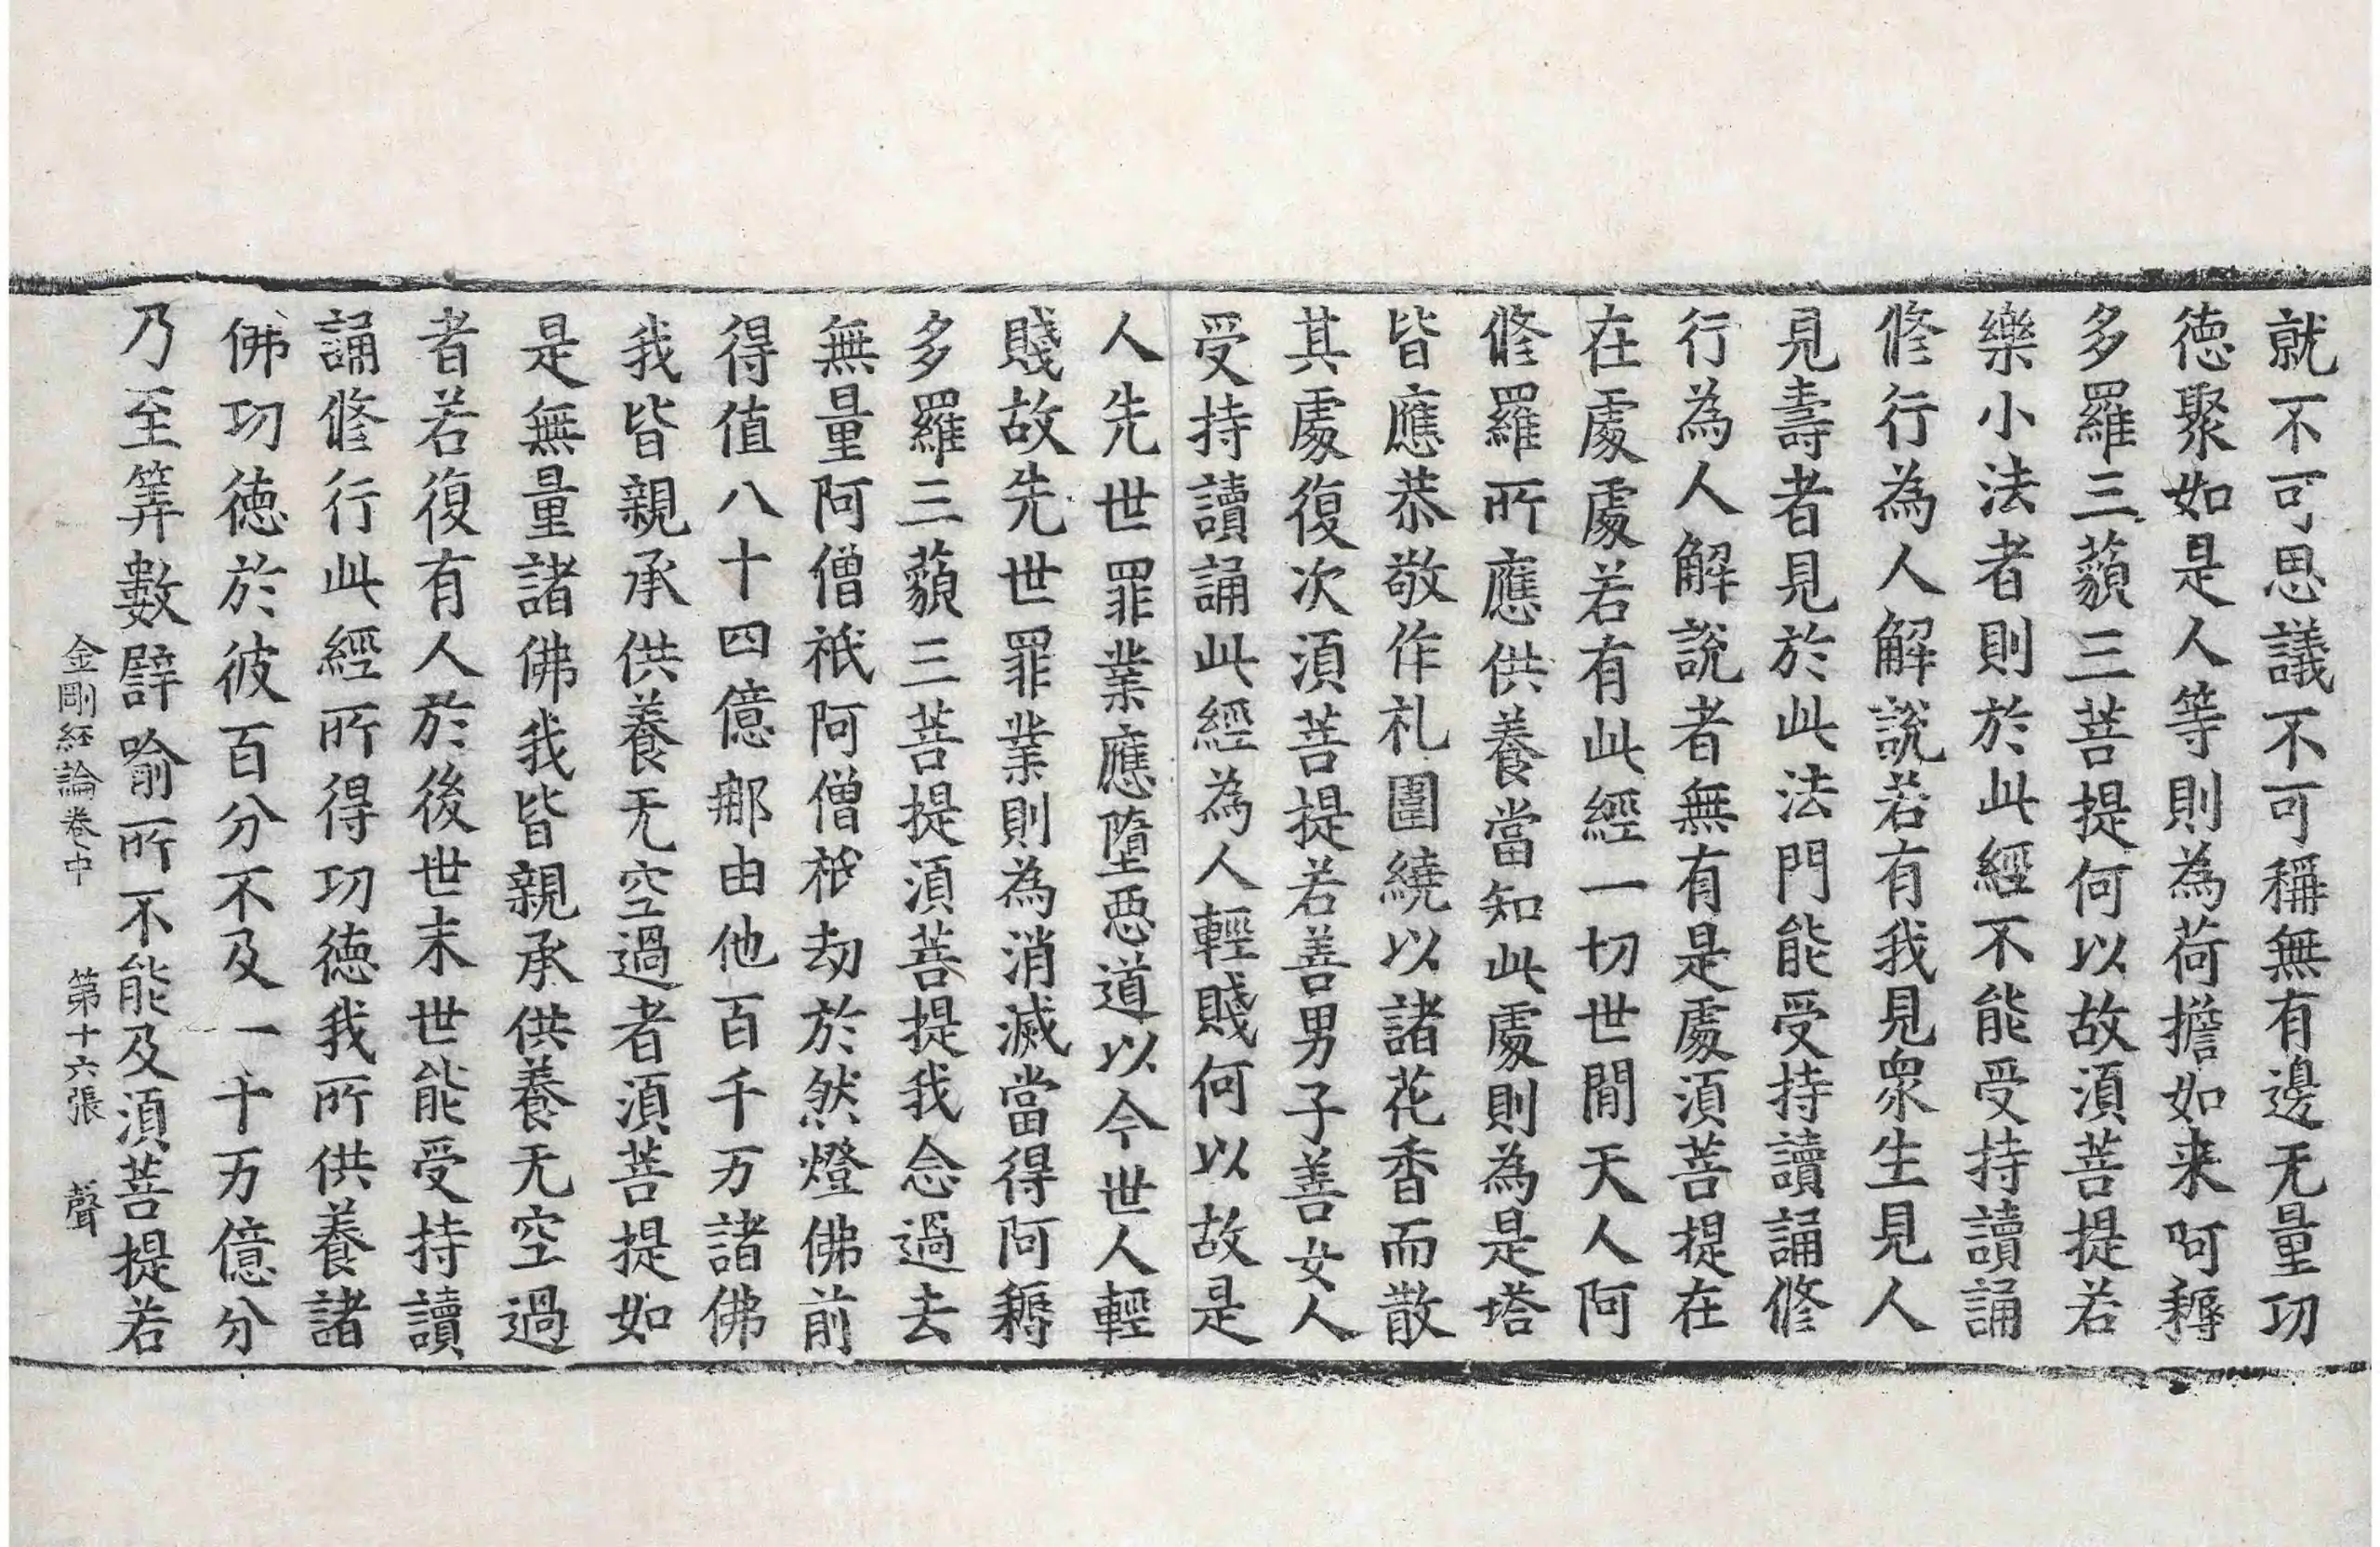 就不可思議不可稱無有邊无量功
德聚如是人等則為荷擔如来阿耨
多羅三藐三菩提何以故湏菩提若
樂小法者則於此經不能受持讀誦
修行為人解說若有我見衆生見人
見壽者見於此法門能受持讀誦修
行為人解說者無有是處湏菩提在
在處處若有此經一切世間天人阿
修羅所應供養當知此處則為是塔
皆應恭敬作礼圍繞以諸花香而散
其處復次湏菩提若善男子善女人
受持讀誦此經為人輕賤何以故是
人先世罪業應墮惡道以今世人輕
賤故先世罪業則為消滅當得阿耨
多羅三藐三菩提湏菩提我念過去
無量阿僧祇阿僧祇劫於然燈佛前
得值八十四億那由他百千万諸佛
我皆親承供養无空過者湏菩提如
是無量諸佛我皆親承供養无空過
者若復有人於後世末世能受持讀
誦修行此經所得功德我所供養諸
佛功德於彼百分不及一千万億分
乃至筭數譬喻所不能及湏菩提若
金剛經論卷中 第十六張 聲